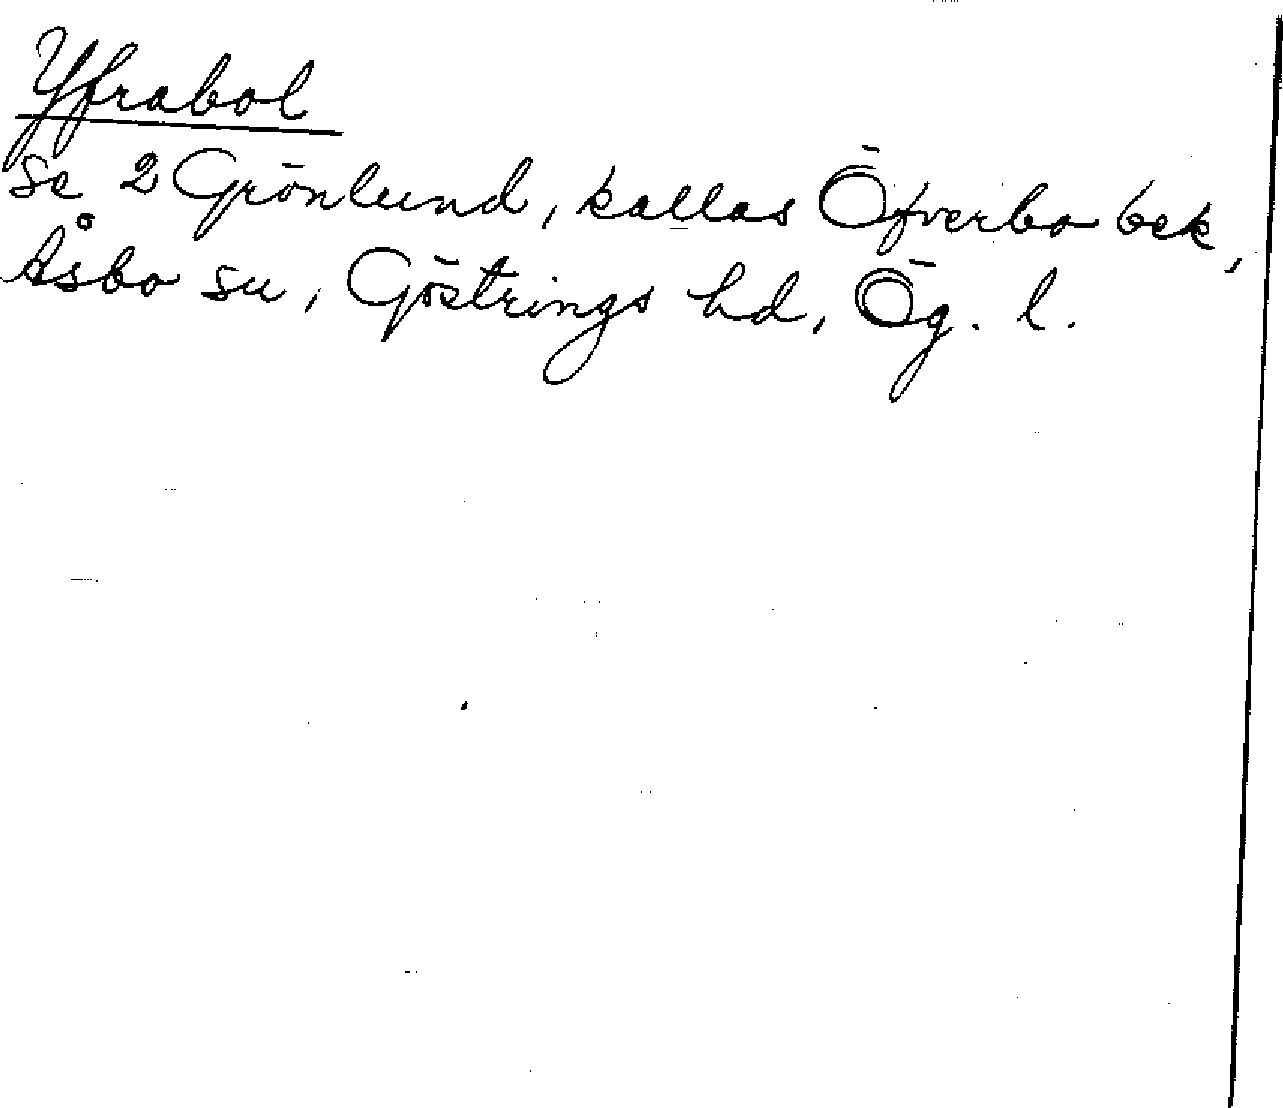 Yfrabol
se 2 Grönlund, kallas Öfverbo bek,
Åsbo sn, Göstrings hd, Ög. l.